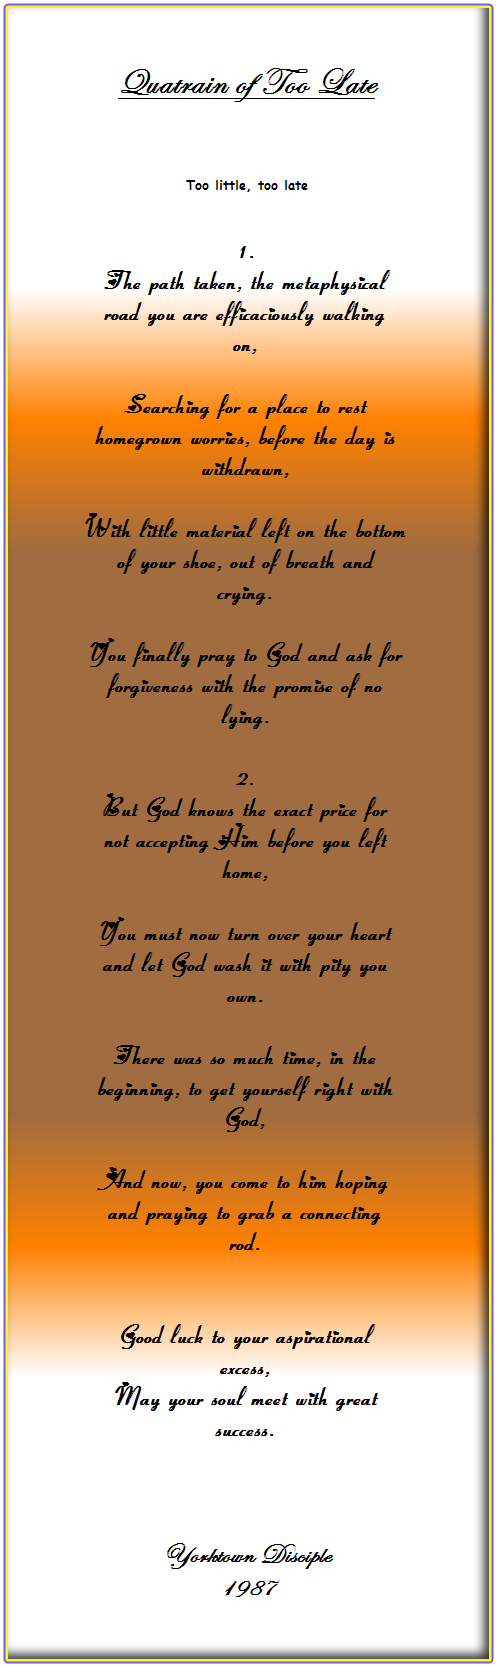 Quatrain of Too Late
Too little, too late
1.
The path taken, the metaphysical
road you are efficaciously walking
on,
Searching for a place to rest
homegrown worries, before the day is
withdrawn,
With little material left on the bottom
of your shoe, out of breath and
crying.
You finally pray to God and ask for
forgiveness with the promise of no
lying.
2.
But God knows the exact price for
not accepting Him before you left
home,
You must now turn over your heart
and let God wash it with pity you
own.
There was so much time, in the
beginning, to get yourself right with
God,
And now, you come to him hoping
and praying to grab a connecting
rod.
Good luck to your aspirational
excess,
May your soul meet with great
success.
Yorktown Disciple
1987